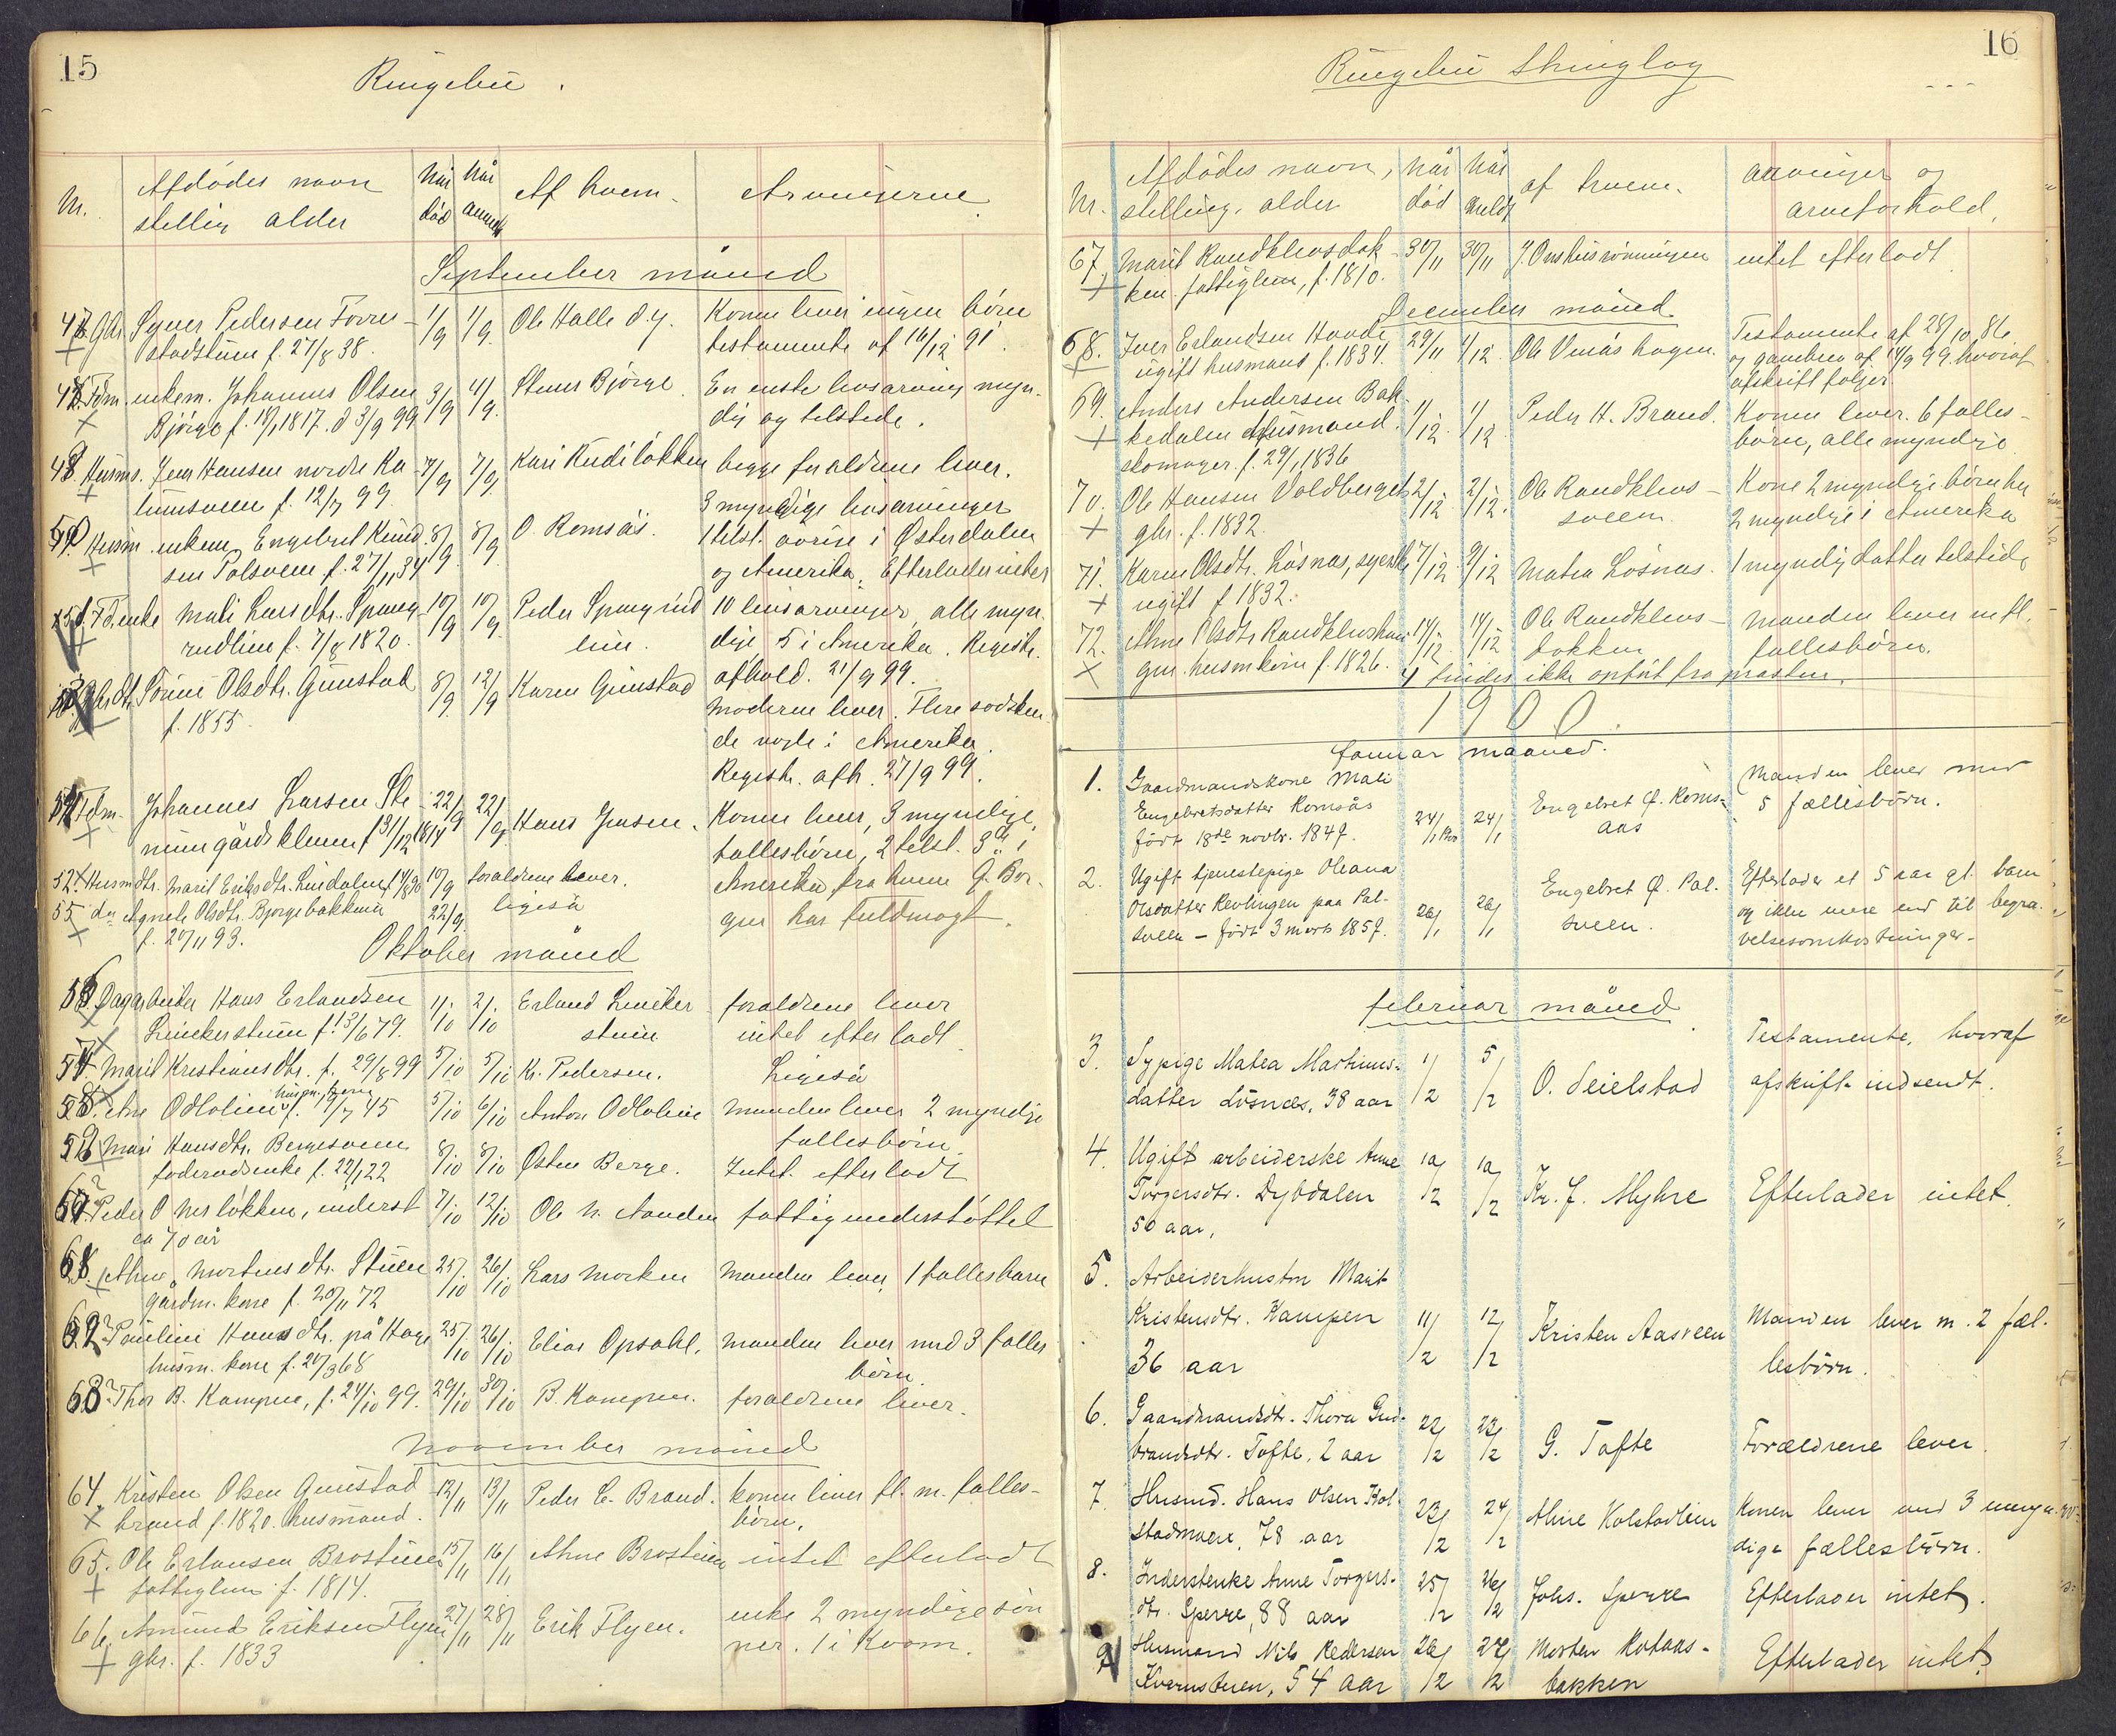 15
Ringebu.
Nr. Afdødes navn når når Af hvem. Arvingerne.
stilling alder død anmeldt
September måned
47. Gbr. Syver Pedersen Forres- 1/9 1/9. Ole Halle d.y. Konen lever ingen børn
stadstuen f. 27/8 38. testamente af 16/12 91.
48. Fdm. enkem. Johannes Olsen 3/9 4/9. Stener Bjørge. En eneste livsarving myn-
Bjørge f. 18/1 1817. d 3/9 99 dig og tilstede.
49. Husms. Jens Hansen nordre Ka- 7/9 7/9. Kari Rudiløkken begge forældrene lever.
lumsveen f. 12/7 99
50. Husm. enkem. Engebret Knud- 8/9 8/9. O. Romsås. 3 myndige livsarvinger
sen Palsveen f. 27/11 34 1 telst. øvrige i Østerdalen
og Amerika. Efterlader intet
51. Fd. enke Mali Larsdtr. Spang- 10/9 10/9. Peder Spangrud 10 livsarvinger, alle myn-
rudlien f. 7/8 1820. lien. dige 5 i Amerika. Registr.
afhold. 21/9 99.
Gbrdtr. Sørine Olsdtr. Gunstad 8/9 12/9 Karen Gunstad Moderen lever. Flere sødsken-
f. 1855. de nogle i Amerika.
Registr. afh. 27/9 99.
54. Fdm. Johannes Larsen Ste- 22/9 22/9. Hans Jensen. Konen lever, 3 myndige,
numgårdsklemm f 31/12 1814 fællesbørn, 2 telst. 3die i
52. Husmdtr. Marit Eriksdtr. Lindalen 10/9 forældrene lever. Amerika fra hvem G. Bor-
55 do Agnete Olsdtr. Bjørgebakken 22/9. ligeså gen har fuldmagt.
f. 20/11 93.
Oktober måned
56. Dagarbeider Hans Erlandsen 1/10 2/10 Erland Lunker- forældrene lever
Lunkerstuen f. 13/6 79. stuen intet efterladt.
57. Marit Kristiansdtr. f. 29/8 99 5/10 5/10 Kr. Pedersen. Ligeså
58. Ane Odlolien f. 17/7 45 5/10 6/10 Anton Odlolien manden lever 2 myndige
fællesbørn
59. Mari Hansdtr. Bergesveen 8/10 8/10 Østen Berge. Intet efterladt
føderådsenke f. 22/1 22
60. Peder O Nerløkken, inderst 7/10 12/10 Ole N. Aanden fattigunderstøttet
ca 70 år
61. Ahne Mortensdtr. Stuen 25/10 26/10 Lars Morken Manden lever, 1 fællesbarn
gårdm. kone f. 20/11 72
62. Pauline Hansdtr. på Hage 25/10 26/10 Elias Opsahl. manden lever med 3 fælles
husm. kone f. 20/3 68 børn
63. Thor B. Kampen, f. 24/10 99. 29/10 30/10 B. Kampen. forældrene lever.
November måned
64. Kristen Olsen Gunstad- 12/11 13/11 Peder C. Brand. konen lever fl. m. fælles-
brand f. 1820. husmand. børn.
65. Ole Erlansen Brostuen 15/11 16/11 Ahne Brostuen intet efterladt
fattiglem f. 1814.
66. Amund Eriksen Flyen 27/11 28/11 Erik Flyen. enke 2 myndige søn
gbr. f. 1833 ner. 1 i Kvam.
16
Ringebu thinglag
Nr. Afdødes navn, når når af hvem. arvinger og
stilling, alder død meldt arveforhold.
67. Marit Randklevsdok- 30/11 30/11 J. Onshusrønningen intet efterladt
ken. fattiglem, f. 1810.
December måned
68. Iver Erlandsen Haade 29/11 1/12. Ole Venåshagen. Testamente af 28/10 86
ugift husmand f. 1834. og gavebrev af 14/9 99. hvoraf
afskrift følger.
69. Anders Andersen Bak- 1/12. 1/12 Peder H. Brand. Konen lever. 6 fælles-
kedalen Husmand. børn, alle myndige
skomager. f. 29/1 1836
70. Ole Hansen Voldberget 2/12 2/12. Ole Randklevs- Kone 2 myndige børn her
gbr. f. 1832. sveen. 2 myndige i Amerika
71. Karen Olsdtr. Løsnæs, syerske 7/12. 9/12 Matea Løsnæs. 1 myndig datter tilstede
ugift f 1832.
72. Ahne Olsdtr Randklevshau- 14/12 14/12 Ole Randklevs- Manden lever m fl.
gen. husmkone f. 1826. dokken fællesbørn.
4 findes ikke opført fra presten.
1900.
Januar maaned.
1. Gaardmandskone Mali Manden lever med
Engebretsdatter Romsås 24/1 24/1 Engebret P. Roms- 5 fællesbørn.
født 18de novbr. 1847. aas
2. Ugift tjenestepige Oleana Engebret P. Pal- Efterlader et 5 aar gl. barn
Olsdatter Kevlingen paa Pal- 26/1 26/1 sveen. og ikke mere end til begra-
sveen – født 3 marts 1857. velsesomkostninger.
februar måned
Testamente, hvoraf
3. Sypige Matea Martinus- 1/2 5/2 O. Seielstad afskrift indsendt.
datter Løsnæs, 38 aar
4. Ugift arbeiderske Anne 10/2 10/2 Kr. J. Myhre Efterlader intet.
Torgersdtr. Dybdalen
50 aar.
5. Arbeiderhustru Marit
Kristensdtr. Kampen 11/2 12/2 Kristen Aasveen Manden lever m. 2 fæl-
36 aar lesbørn.
6. Gaardmandsdtr. Thora Gud- 22/2 23/2 G. Tofte Forældrene lever.
brandsdtr. Tofte, 2 aar
7. Husmd. Hans Olsen Kol- 23/2 24/2 Ahne Kolstadlien Konen lever med 3 umyn-
stadmoen, 78 aar dige fællesbørn.
8. Inderstenke Anne Torgers- 25/2 26/2 Johs. Sperre Efterlader intet.
dtr. Sperre, 88 aar
9. Husmand Nils Pedersen 26/2 27/2 Morten Kolaas- Efterlader intet.
Kvernstuen, 54 aar bakken